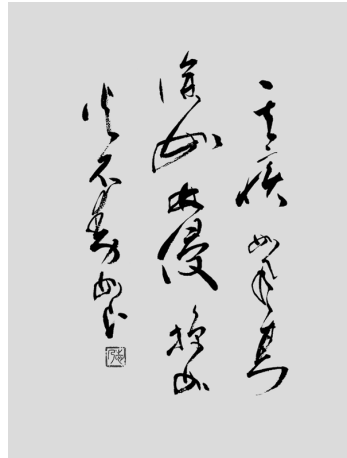 其疾如風其
徐如林侵掠如
火不動如山